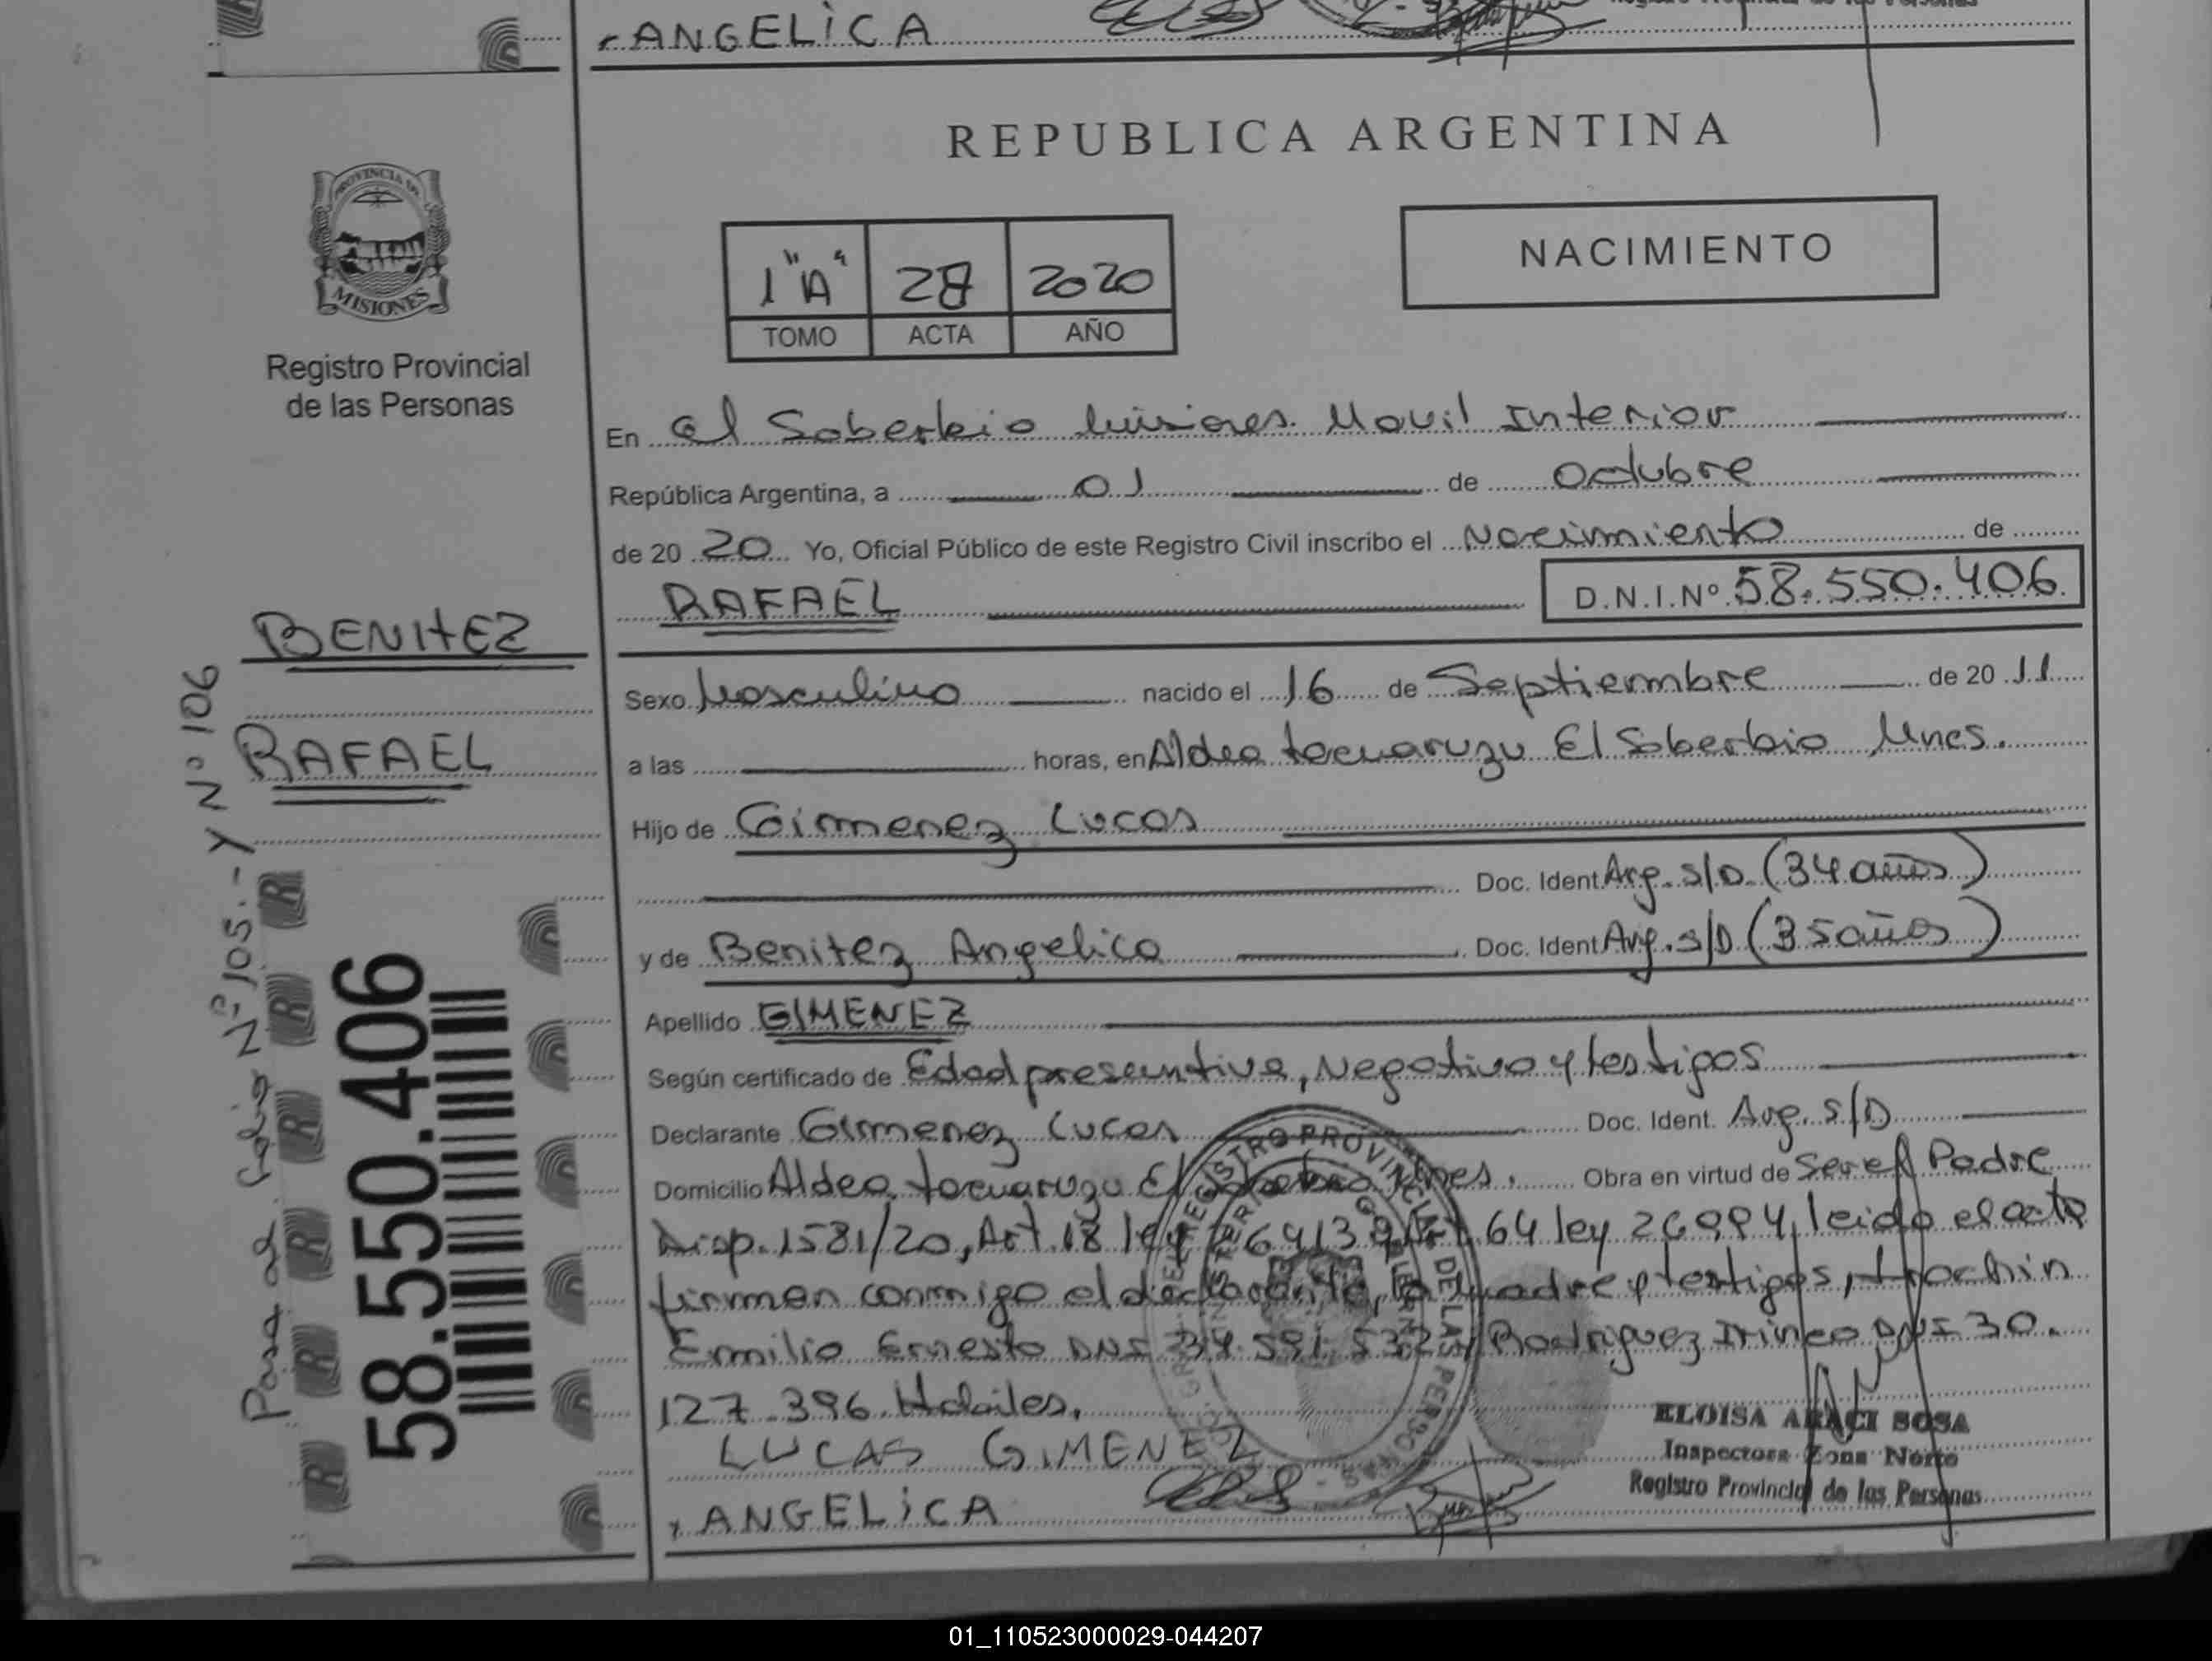 ANGELICA
REPUBLICA ARGENTINA
PROVINCIA DE
MISIONES
Registro Provincial
de las Personas
1 "A" 28 2020
TOMO ACTA AÑO
NACIMIENTO
En El Soberbio Misiones. Movil Interior
República Argentina, a 01 de Octubre
de 20 20 Yo, Oficial Público de este Registro Civil inscribo el Nacimiento de
RAFAEL D.N.I.Nº 58.550.406
BENITEZ
RAFAEL
Sexo Masculino nacido el 16 de Septiermbre de 20 11
a las horas, en Aldea tacuaruzu El Soberbio Mnes.
Hijo de Gimenez Lucas
Doc. Ident Arg. S/D. (34 años)
y de Benitez Angelica Doc. Ident Arg. S/D (35 años)
Apellido GIMENEZ
Según certificado de Edad presuntiva, Negativo y testigos
Declarante Gimenez Lucas Doc. Ident. Arg. S/D
Domicilio Aldea tacuaruzu El Mnes. Obra en virtud de Ser el Padre
Disp. 1581/20, Art. 18 ley 26413 Art 64 ley 26994, leido el acta
firman conmigo el declarante, la madre y testigos,
Emilio Ernesto DNI 34.591.532 y Rodriguez Irineo DNI 30.
127.396 Habiles.
LUCAS GIMENEZ
ANGELICA
ELOISA ARACI SOSA
Inspectora Zona Norte
Registro Provincial de las Personas
REGISTRO PROVINCIAL DE LAS PERSONAS
Pasa al folio Nº 105.- Y Nº 106
58.550.406
01_110523000029-044207